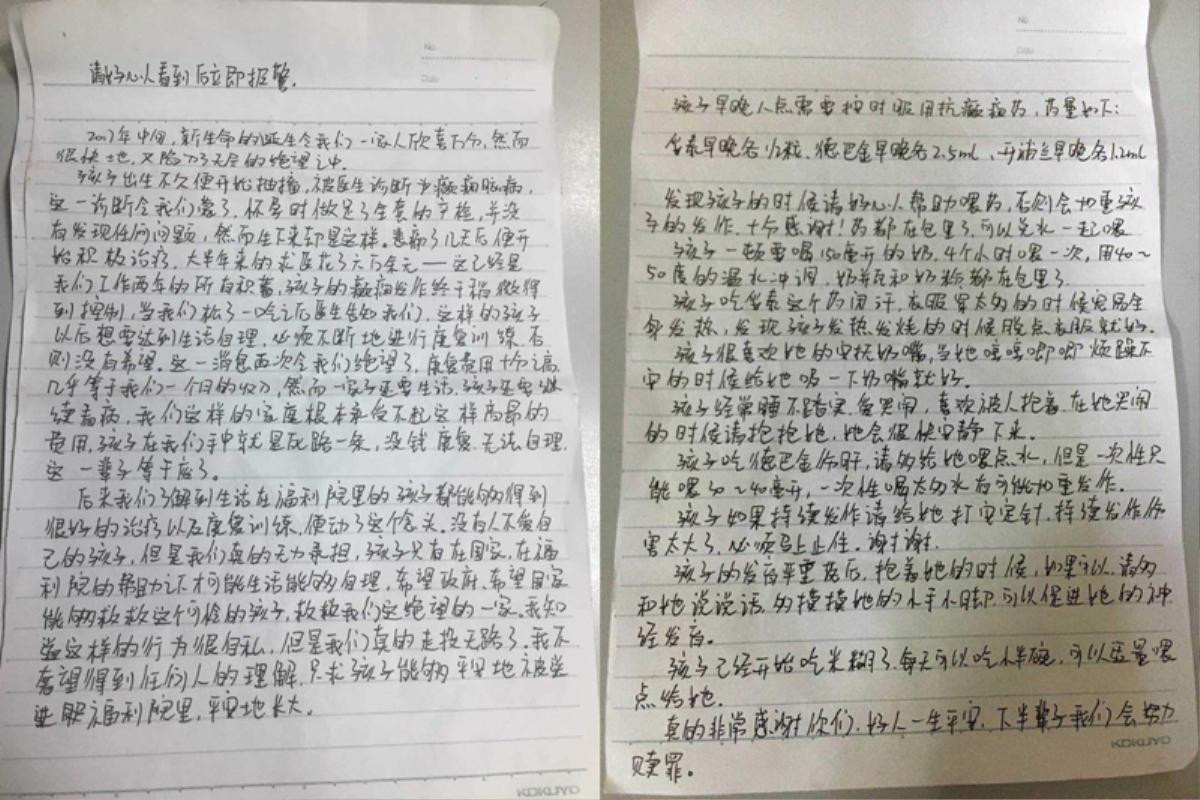 No.
Date
请好心人看到后立即报警。
2017年中旬，新生命的诞生令我们一家人欣喜万分，然而
很快地，又陷入了无尽的绝望之中。
孩子出生不久便开始抽搐，被医生诊断为癫痫脑病，
这一诊断令我们懵了，怀孕时做足了全套的产检，并没
有发现任何问题，然而生下来却是这样。悲痛了几天后便开
始积极治疗，大半年来的求医花了六万余元——这已经是
我们工作两年的所有积蓄，孩子的癫痫发作终于稍微得
到控制，当我们松了一口气之后医生告知我们，这样的孩子
以后想要达到生活自理，必须不断地进行康复训练，否
则没有希望。这一消息再次令我们绝望了，康复费用十分高，
几乎等于我们一个月的收入，然而一家子还要生活，孩子还要继
续看病，我们这样的家庭根本承受不起这样高昂的
费用，孩子在我们手中就是死路一条，没钱康复，无法自理，
这一辈子等于废了。
后来我们了解到生活在福利院里的孩子都能够得到
很好的治疗以及康复训练，便动了这个念头。没有人不爱自
己的孩子，但是我们真的无力承担，孩子只有在国家，在福
利院的帮助下才可能生活能够自理，希望政府、希望国家
能够救救这个可怜的孩子，救救我们这绝望的一家。我知
道这样的行为很自私，但是我们真的走投无路了。我不
奢望得到任何人的理解，只求孩子能够平安地被送
进福利院里，平安地长大。
KOKUYO
No.
Date
孩子早晚八点需要按时服用抗癫痫药，药量如下：
妥泰早晚各1/2粒、德巴金早晚各2.5ml、开浦兰早晚各1.2ml
发现孩子的时候请好心人帮助喂药，否则会加重孩
子的发作，十分感谢！药都在包里了，可以兑水一起喂
孩子一顿要喝150毫升的奶，4个小时喂一次，用40~
50度的温水冲调，奶瓶和奶粉都在包里了。
孩子吃妥泰这个药闭汗，衣服穿太多的时候容易全
身发热，发现孩子发热发烧的时候脱点衣服就好。
孩子很喜欢她的安抚奶嘴，当她嘤嘤唧唧烦躁不
安的时候给她吸一下奶嘴就好。
孩子经常睡不踏实，爱哭闹，喜欢被人抱着，在她哭闹
的时候请抱抱她，她会很快安静下来。
孩子吃德巴金伤肝，请多给她喂点水，但是一次性只
能喂30~40毫升，一次性喝太多水有可能加重发作。
孩子如果持续发作请给她打安定针，持续发作伤
害太大了，必须马上止住。谢谢谢。
孩子的发育严重落后，抱着她的时候，如果可以，请多
和她说说话，多摸摸她的小手小脚，可以促进她的神
经发育。
孩子已经开始吃米糊了，每天可以吃小半碗，可以适量喂
点给她。
真的非常感谢你们，好人一生平安，下半辈子我们会努力
赎罪。
KOKUYO